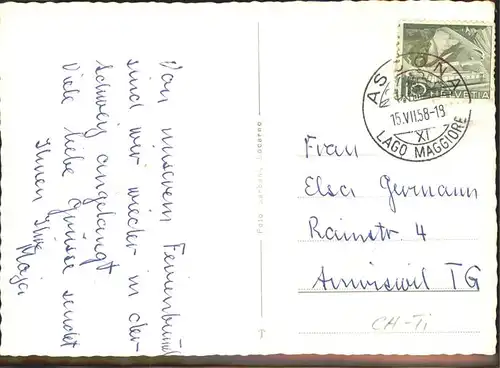 Von unserem Ferienbummel
sind wir wieder in der
Schweiz angelangt
Viele liebe Grüsse sendet
Ihnen Ihre
Maja
HELVETIA
ASCONA
15.VII.58-19
XI
LAGO MAGGIORE
Frau
Elsa Germann
Rainstr. 4
Amriswil TG
CH-Ti